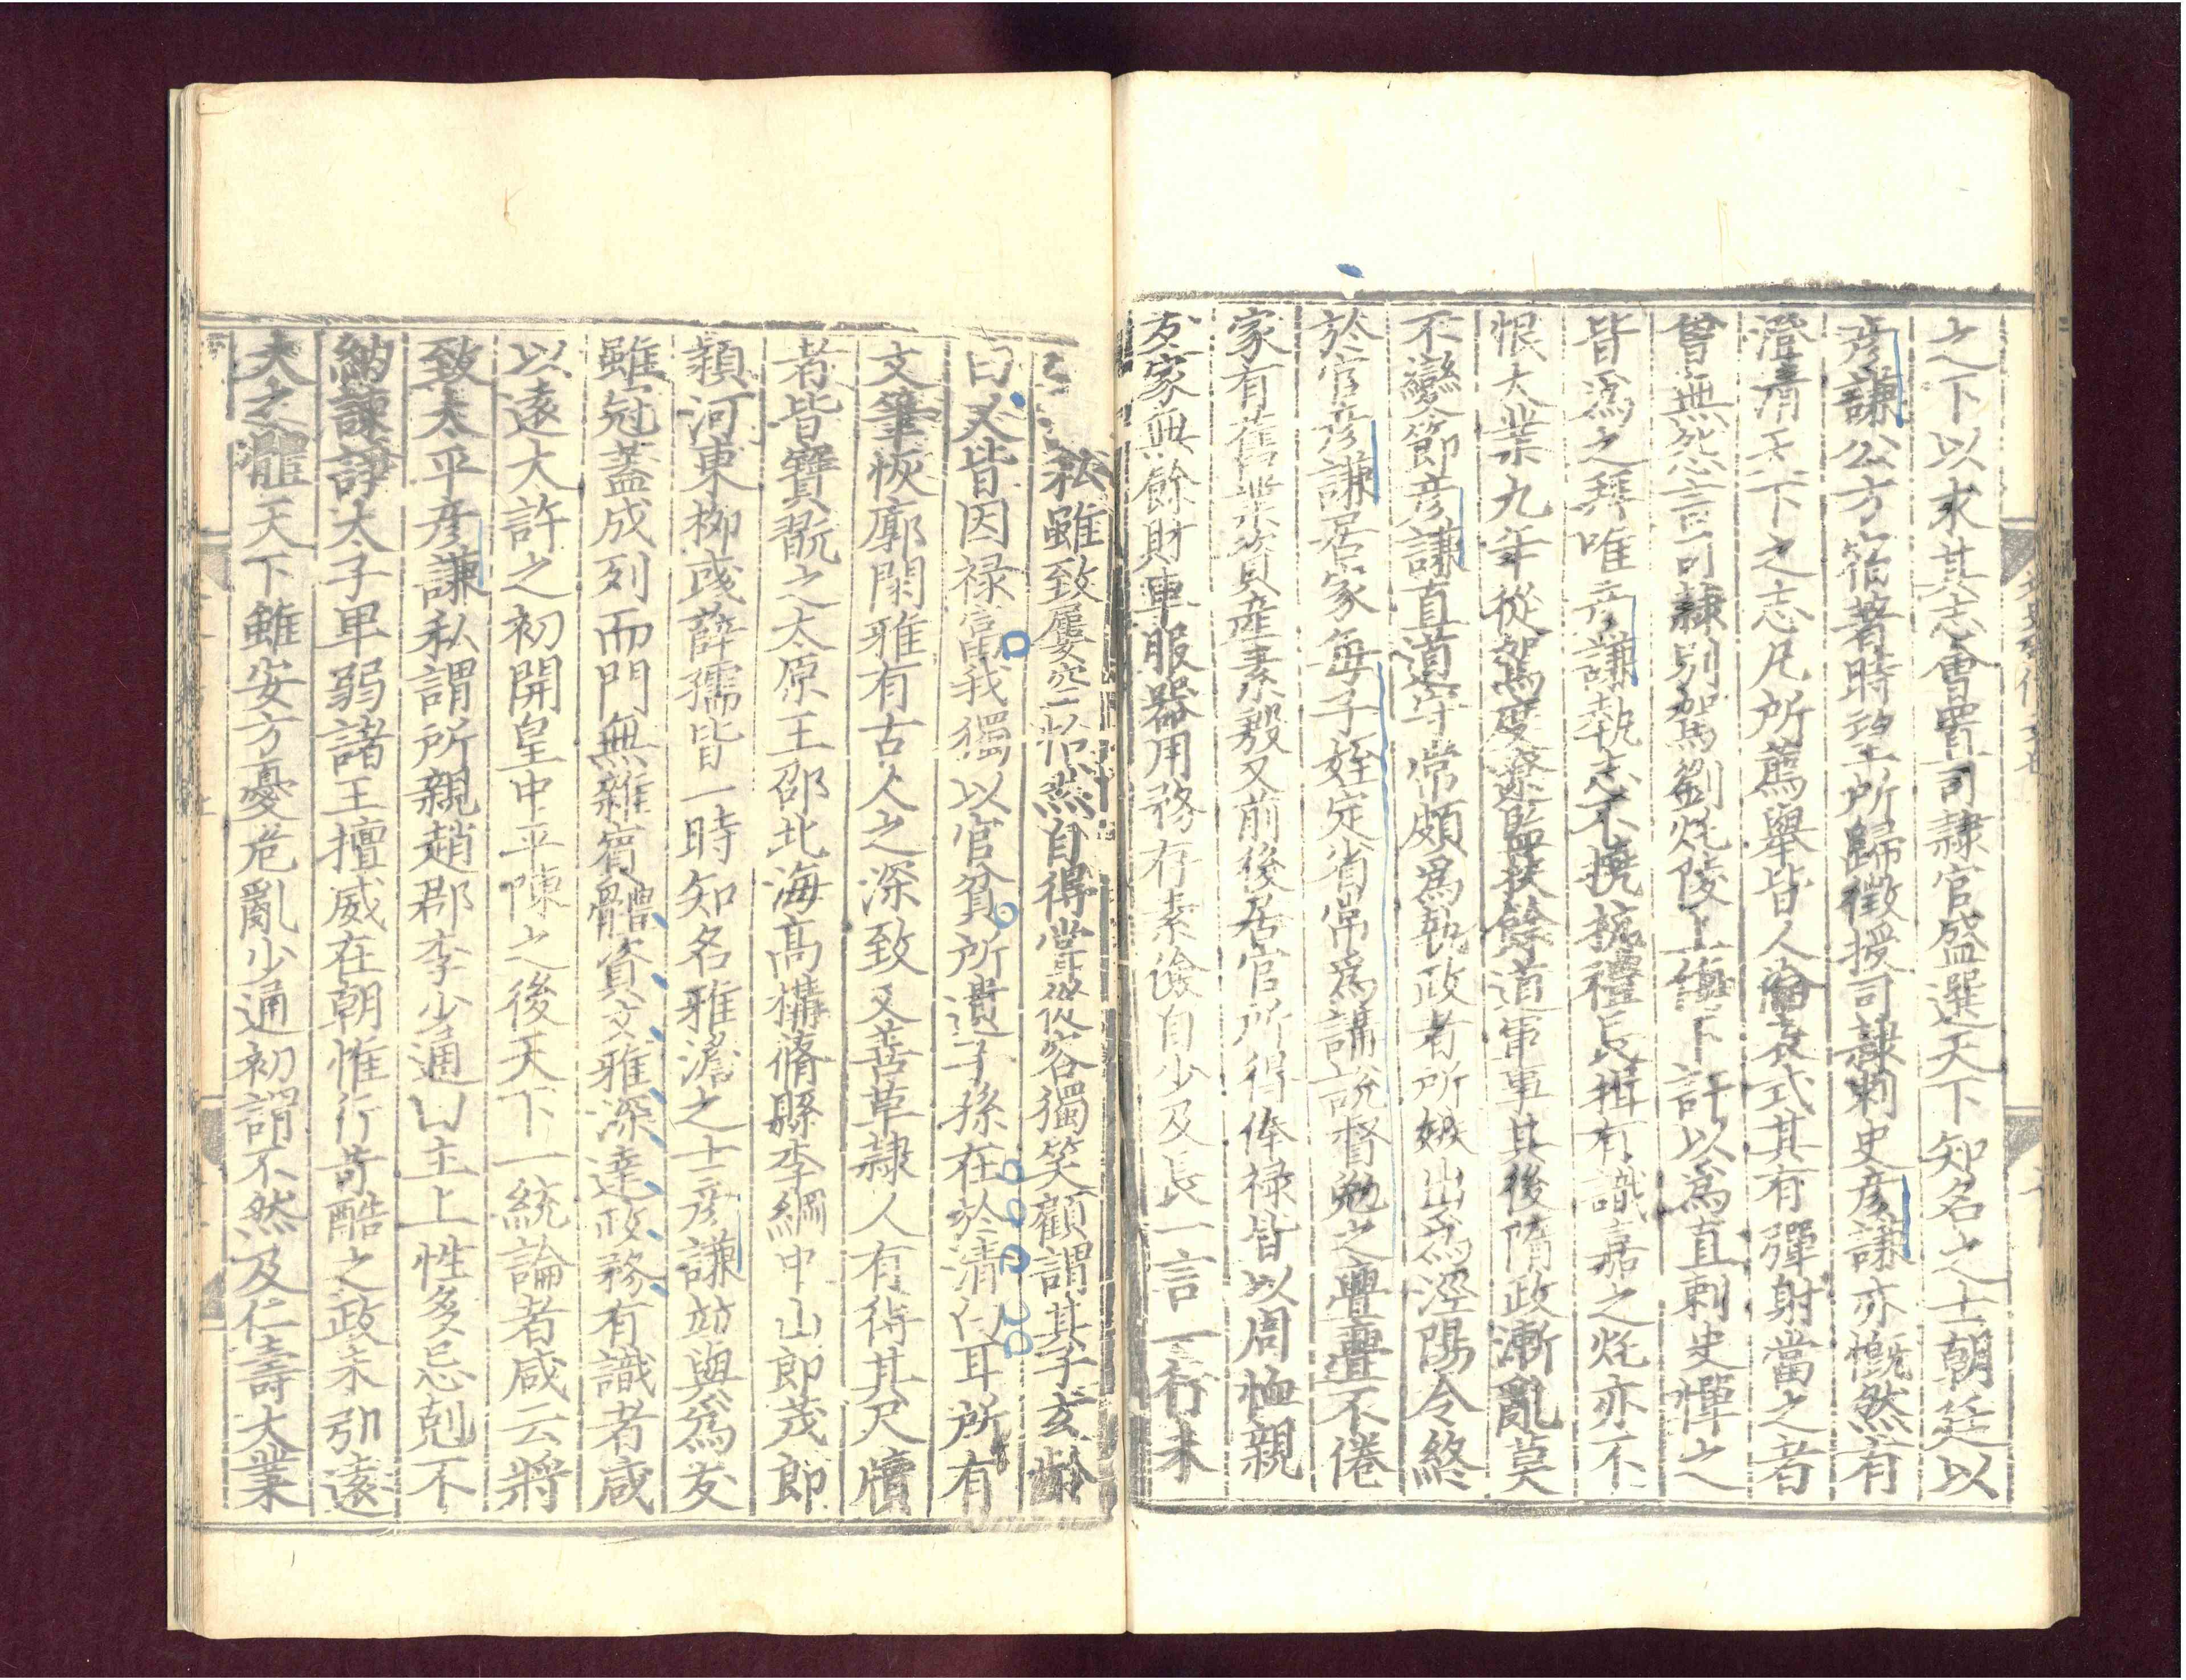 之下以求其志會置司隸官盛選天下知名之士朝廷以
彦謙公方宿著時望所歸徴授司隸刺史彦謙亦慨然有
澄清天下之志凡所薦舉皆人倫表式其有彈射當之者
曾無怨言司隸別駕劉灹陵上侮下訐以為直刺史憚之
皆為之拜唯彦謙執志不撓抗禮長揖有識嘉之灹亦不
恨大業九年從駕度遼監扶餘道軍事其後隋政漸亂莫
不變節彦謙直道守常頗為執政者所嫉出為涇陽令終
於官彦謙居家每子姪定省常為講說督勉之亹亹不倦
家有舊業資産素殷又前後居官所得俸禄皆以周恤親
友家無餘財車服器用務存素儉自少及長一言一行未
私雖致屢空怡然自得嘗從容獨笑顧謂其子玄齡
曰人皆因禄富我獨以官貧所遺子孫在於清白耳所有
文筆恢廓閑雅有古人之深致又善草隸人有得其尺牘
者皆寶翫之太原王邵北海高構脩縣李綱中山郎茂郎
穎河東柳彧薛孺皆一時知名雅澹之士彦謙並與為友
雖冠蓋成列而門無雜賓體資文雅深達政務有識者咸
以遠大許之初開皇中平陳之後天下一統論者咸云將
致太平彦謙私謂所親趙郡李少通曰主上性多忌剋不
納諫諍太子卑弱諸王擅威在朝惟行苛酷之政未引遠
大之體天下雖安方憂危亂少通初謂不然及仁壽大業